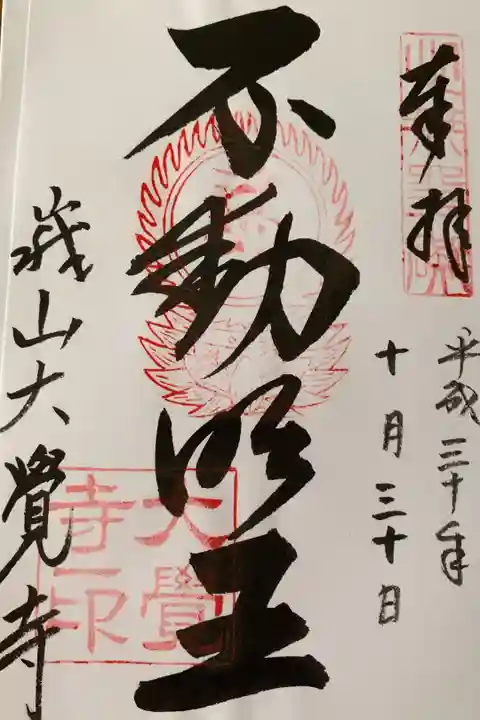 奉拝
平成三十年
十月三十日
不動明王
嵯山大覺寺
大覺寺印